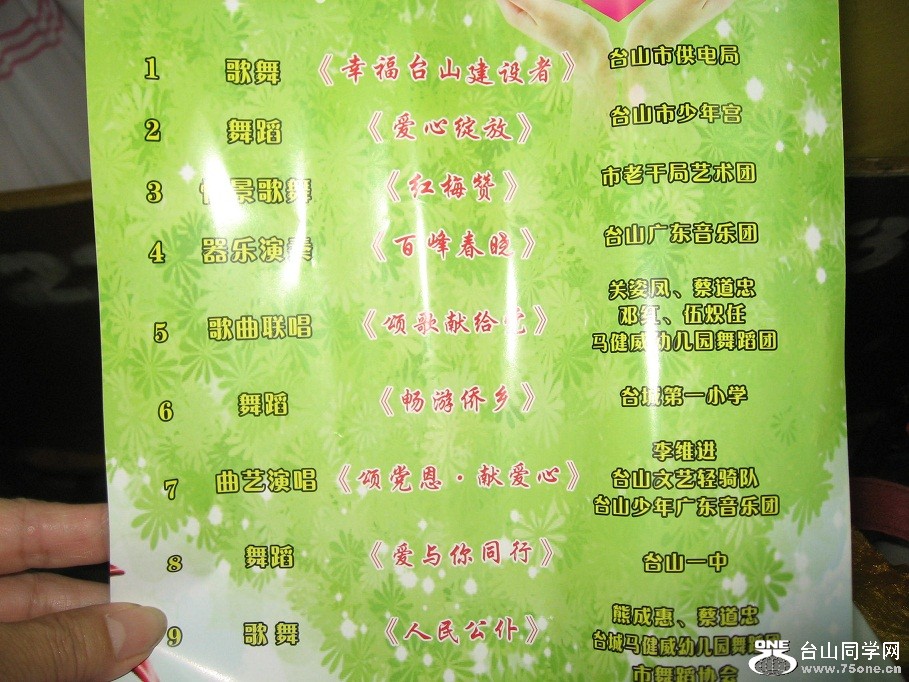 1 歌舞 《幸福台山建设者》 台山市供电局
2 舞蹈 《爱心绽放》 台山市少年宫
3 情景歌舞 《红梅赞》 市老干局艺术团
4 器乐演奏 《百峰春晓》 台山广东音乐团
关姿凤、蔡道忠
邓红、伍炽任
5 歌曲联唱 《颂歌献给党》
马健威幼儿园舞蹈团
6 舞蹈 《畅游侨乡》 台城第一小学
李维进
7 曲艺演唱 《颂党恩·献爱心》 台山文艺轻骑队
台山少年广东音乐团
8 舞蹈 《爱与你同行》 台山一中
熊成惠、蔡道忠
9 歌舞 《人民公仆》 台城马健威幼儿园舞蹈团
市舞蹈协会
ONE 台山同学网
www.75one.cn